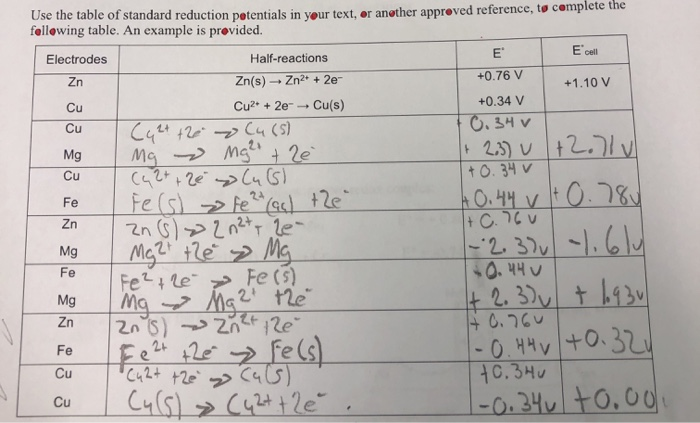 Use the table of standard reduction potentials in your text, or another approved reference, to complete the
following table. An example is provided.
Electrodes Half-reactions E° E°cell
Zn Zn(s) → Zn²⁺ + 2e⁻ +0.76 V +1.10 V
Cu Cu²⁺ + 2e⁻ → Cu(s) +0.34 V
Cu Cu²⁺ +2e⁻ → Cu(s) +0.34 V
Mg Mg → Mg²⁺ + 2e⁻ + 2.37 V +2.71 V
Cu Cu²⁺ + 2e⁻ → Cu(s) +0.34 V
Fe Fe(s) → Fe²⁺(aq) +2e⁻ +0.44 V +0.78V
Zn Zn(s) → Zn²⁺ + 2e⁻ +0.76V
Mg Mg²⁺ +2e⁻ → Mg -2.37V -1.61V
Fe Fe²⁺ + 2e⁻ → Fe(s) -0.44V
Mg Mg → Mg²⁺ +2e⁻ + 2.37V + 1.93V
Zn Zn(s) → Zn²⁺ +2e⁻ + 0.76V
Fe Fe²⁺ +2e⁻ → Fe(s) -0.44V +0.32V
Cu Cu²⁺ +2e⁻ → Cu(s) +0.34V
Cu Cu(s) → Cu²⁺ +2e⁻. -0.34V +0.00